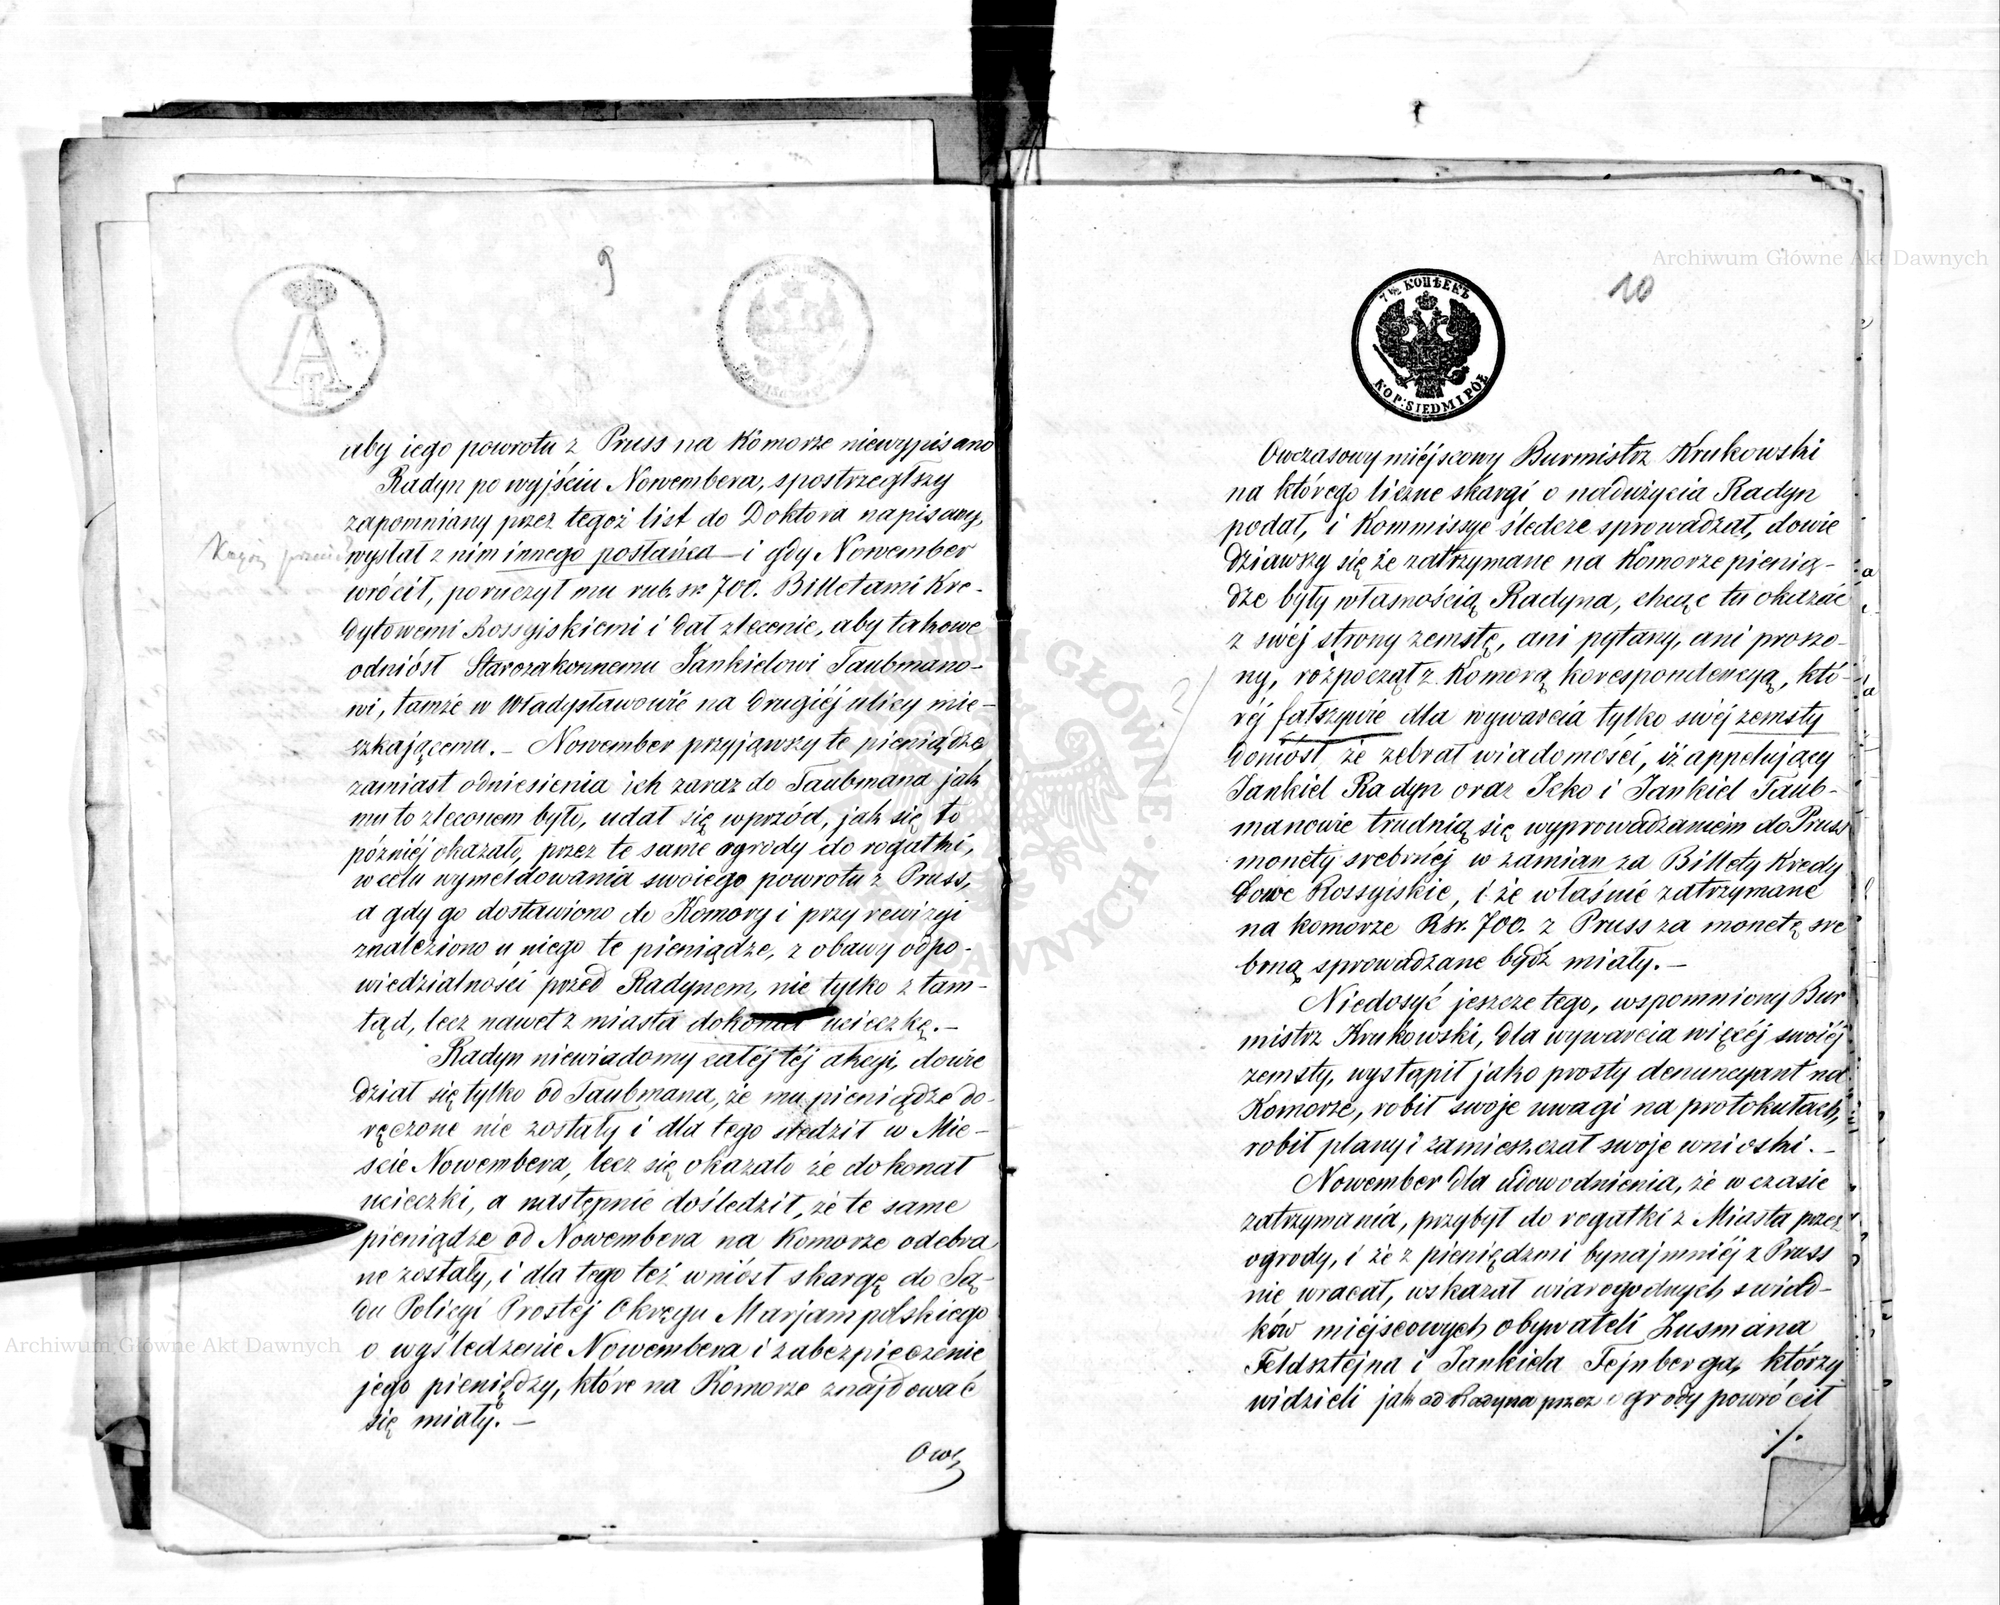 9
aby iego powrotu z Pruss na Komorze niewypisano
Radyn po wyjściu Nowembera, spostrzegłszy
zapomniany przez tegoż list do Doktora napisany,
wysłał z nim innego posłańca – i gdy Nowember
wrócił, poruczył mu rub. sr. 700. Billetami Kre-
dytowemi Rossyiskiemi i dał zlecenie, aby takowe
odniósł Starozakonnemu Jankielowi Taubmano-
wi, tamże w Władysławowie na drugiéj ulicy mie-
szkającemu. – Nowember przyjąwszy te pieniądze
zamiast odniesienia ich zaraz do Taubmana jak
mu to zleconem było, udał się wprzód, jak się to
późniéj okazało, przez te same ogrody do rogatki,
w celu wymeldowania swoiego powrotu z Pruss,
a gdy go dostawiono do Komory i przy rewizyi
znaleziono u niego te pieniądze, z obawy odpo-
wiedzialności przed Radynem, nie tylko z tam-
tąd, lecz nawet z miasta dokonał ucieczkę. –
Radyn niewiadomy całéj téj akcyi, dowie
dział się tylko od Taubmana, że mu pieniądze do-
ręczone nie zostały i dla tego śledził w Mie-
scie Nowembera, lecz się okazało że dokonał
ucieczki, a następnie dośledził, że te same
pieniądze od Nowembera na Komorze odebra
ne zostały, i dla tego też wniósł skargę do Są-
du Policyi Prostéj Okręgu Marjampolskiego
o wyśledzenie Nowembera i zabezpieczenie
jego pieniędzy, które na Komorze znajdować
się miały. –
Owc
10
7½ КОПѢЕКЪ
KOP: SIEDM I PÓŁ
Owczasowy miéjscowy Burmistrz Krukowski
na którego liczne skargi o nadużycia Radyn
podał, i Kommissye śledcze sprowadzał, dowie
dziawszy się że zatrzymane na Komorze pienią-
dze były własnością Radyna, chcąc tu okazać
z swéj strony zemstę, ani pytany, ani proszo-
ny, rozpoczął z Komorą korespondencyą, któ-
réj fałszywie dla wywarcia tylko swéj zemsty
doniósł, że zebrał wiadomości, iż appelujący
Jankiel Radyn oraz Icko i Jankiel Taub-
manowie trudnią się wyprowadzaniem do Pruss
monety srebrnéj w zamian za Billety Kredy
towe Rossyiskie, i że właśnie zatrzymane
na komorze Rsr. 700. z Pruss za monetę sre
brną sprowadzane bydź miały. –
Niedosyć jeszcze tego, wspomniony Bur
mistrz Krukowski, dla wywarcia więcéj swoiéj
zemsty, wystąpił jako prosty denuncyant na
Komorze, robił swoje uwagi na protokułach,
robił plany i zamieszczał swoje wnioski. –
Nowember dla udowodnienia, że w czasie
zatrzymania, przybył do rogatki z Miasta przez
ogrody, i że z pieniędzmi bynajmniéj z Pruss
nie wracał, wskazał wiarogodnych świad-
ków miéjscowych obywateli Zusmana
Feldsztejna i Jankiela Fejnberga, którzy
widzieli jak od Radyna przez ogrody powrócił
./.
Archiwum Główne Akt Dawnych
Archiwum Główne Akt Dawnych